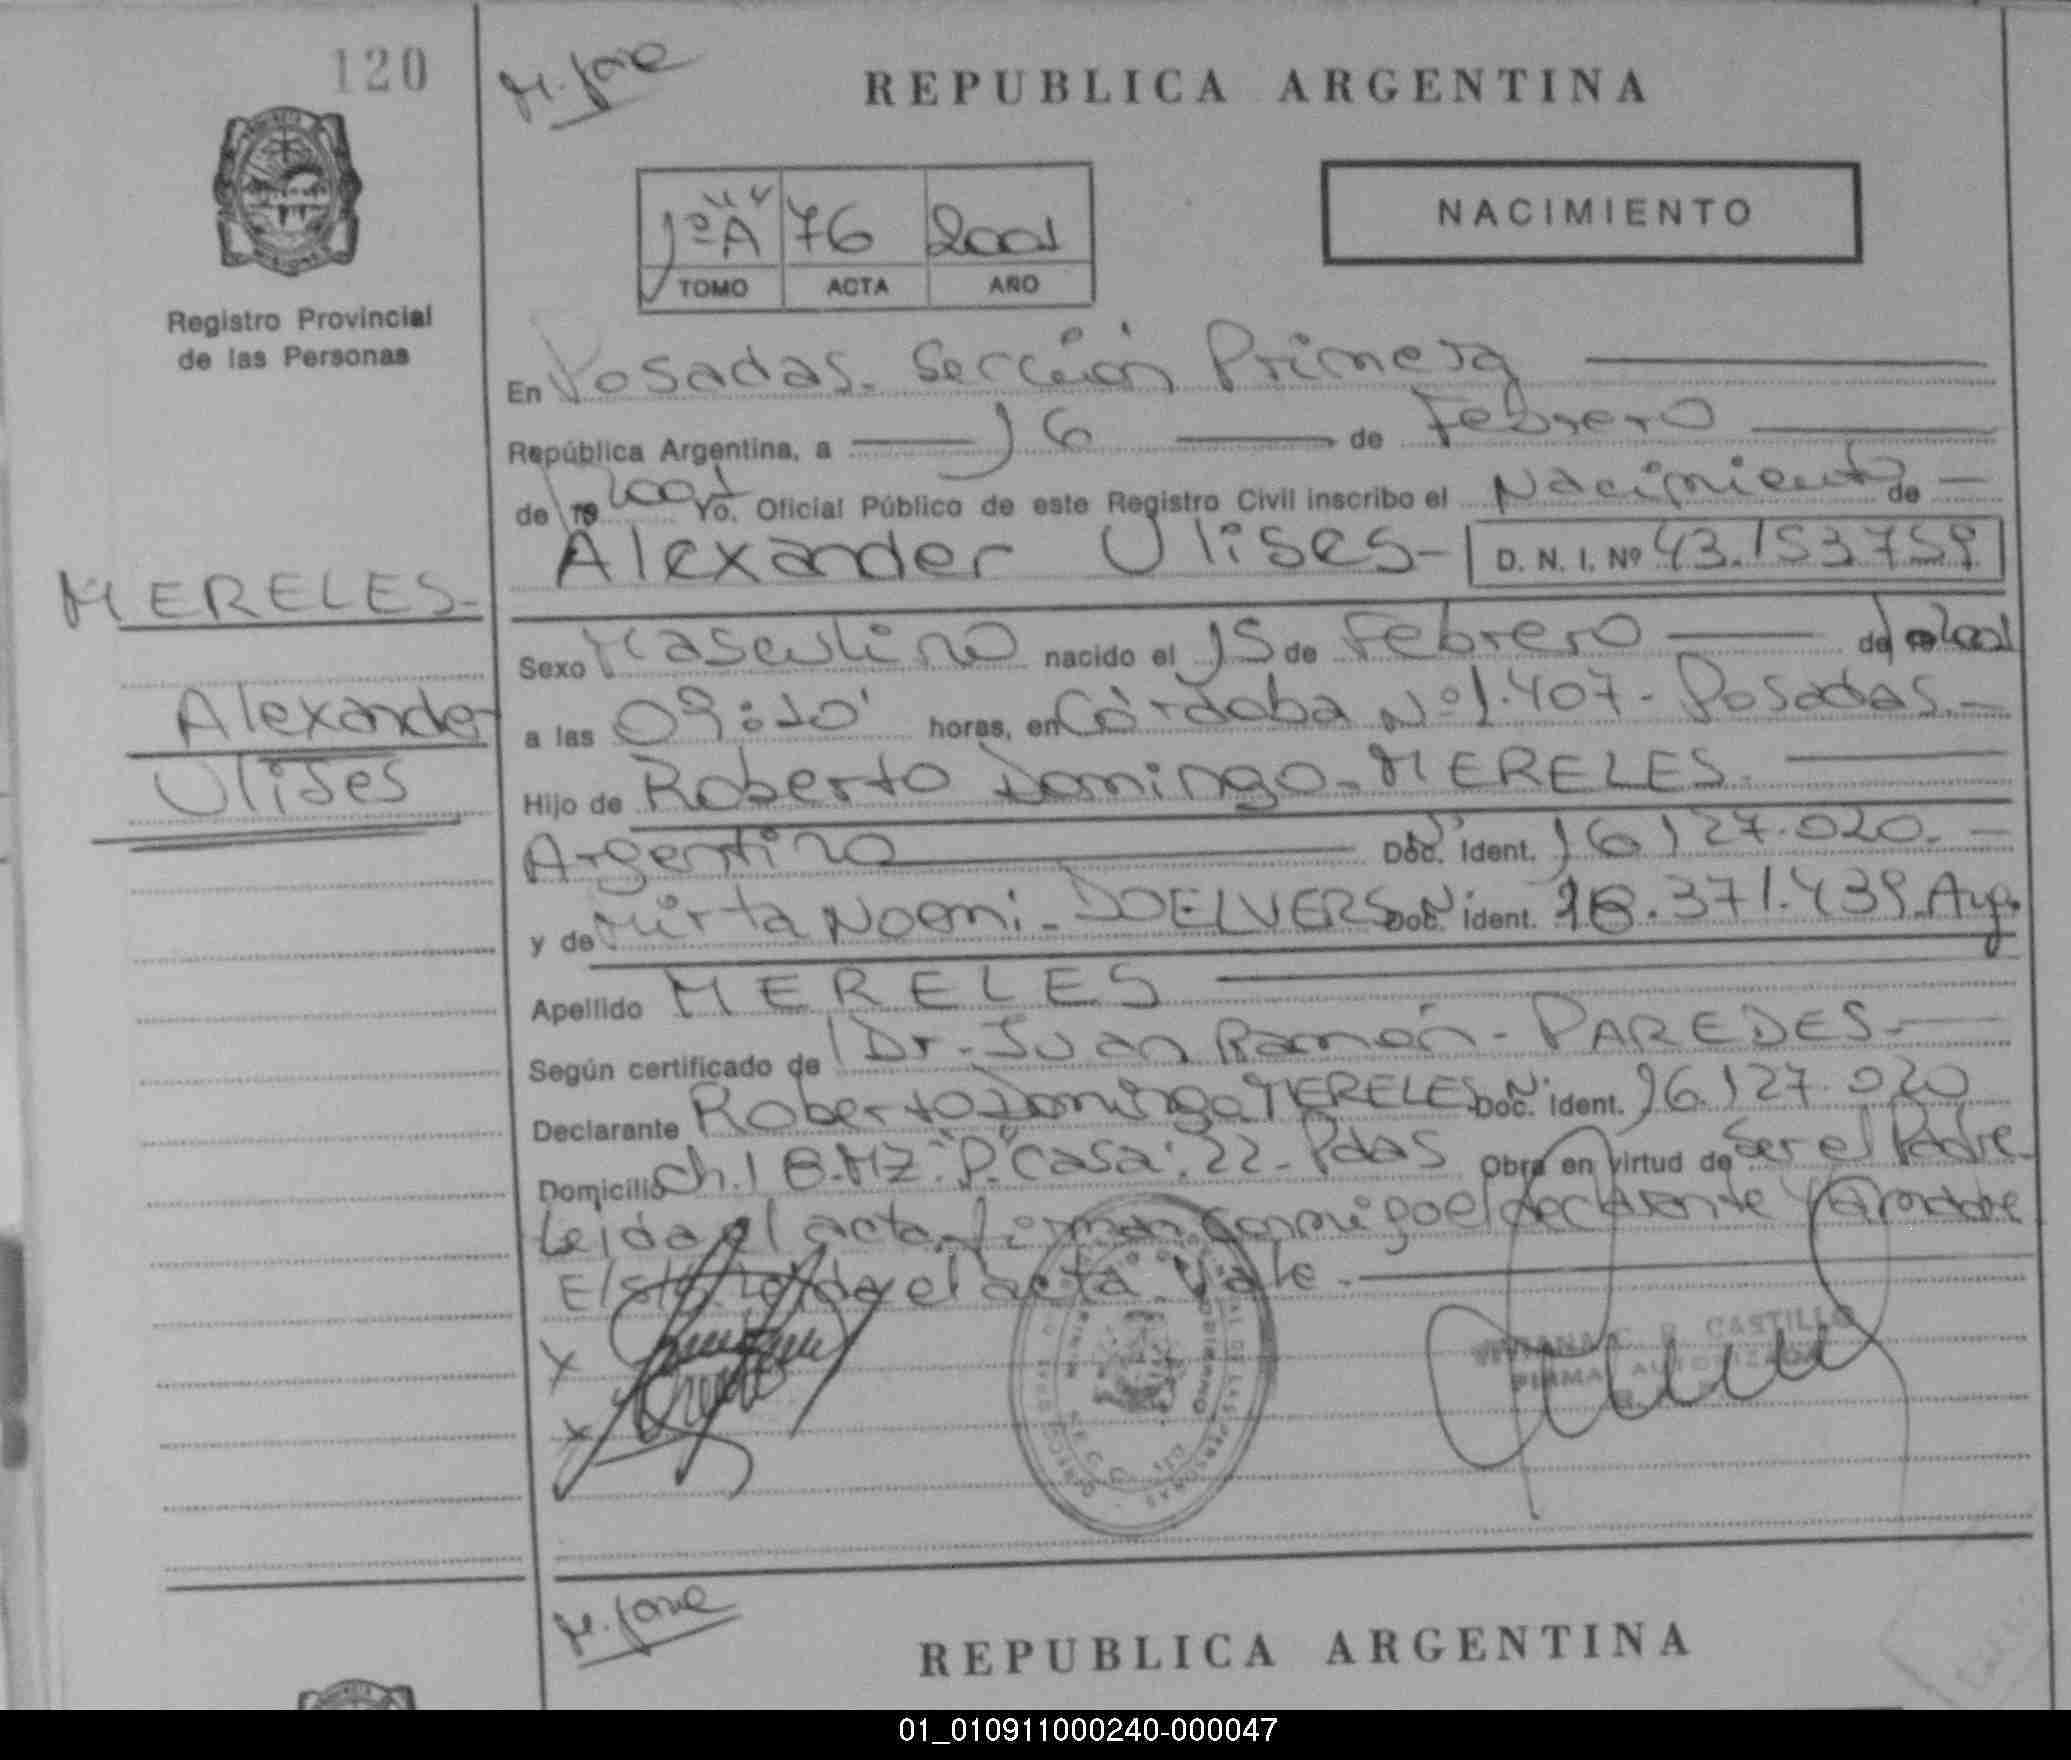 120
M. Jove
REPUBLICA ARGENTINA
NACIMIENTO
1º "A" 76 2001
TOMO ACTA AÑO
Registro Provincial
de las Personas
En Posadas. Sección Primera
República Argentina, a 16 de Febrero
de 19 2001 Yo. Oficial Público de este Registro Civil inscribo el Nacimiento de
Alexander Ulises- D. N. I. Nº 43.153.759
MERELES-
Alexander
Ulises
Sexo Masculino nacido el 15 de Febrero de 19 2001
a las 09:10' horas, en Córdoba Nº 1.407- Posadas.-
Hijo de Roberto Domingo- MERELES-
Argentino Doc. Ident. 16.127.020.-
y de Mirta Noemi- DOELVERS Doc. Ident. 18.371.439. Arg.
Apellido MERELES
Según certificado de Dr. Juan Ramón- PAREDES-
Declarante Roberto Domingo MERELES Doc. Ident. 16.127.020
Domicilio Ch. 18-MZ "P" Casa: 22- Pdas Obra en virtud de Ser el Padre-
Leida el acta, firman conmigo el declarante y la madre
leida el acta. Vale.
X
X
CASTILLO
FIRMA AUTORIZADA
M. Jove
REPUBLICA ARGENTINA
01_010911000240-000047